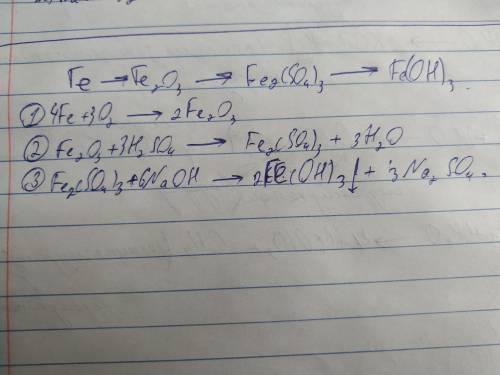 Fe → Fe₂O₃ → Fe₂(SO₄)₃ → Fe(OH)₃.
① 4Fe + 3O₂ → 2Fe₂O₃
② Fe₂O₃ + 3H₂SO₄ → Fe₂(SO₄)₃ + 3H₂O
③ Fe₂(SO₄)₃ + 6NaOH → 2Fe(OH)₃↓ + 3Na₂SO₄.